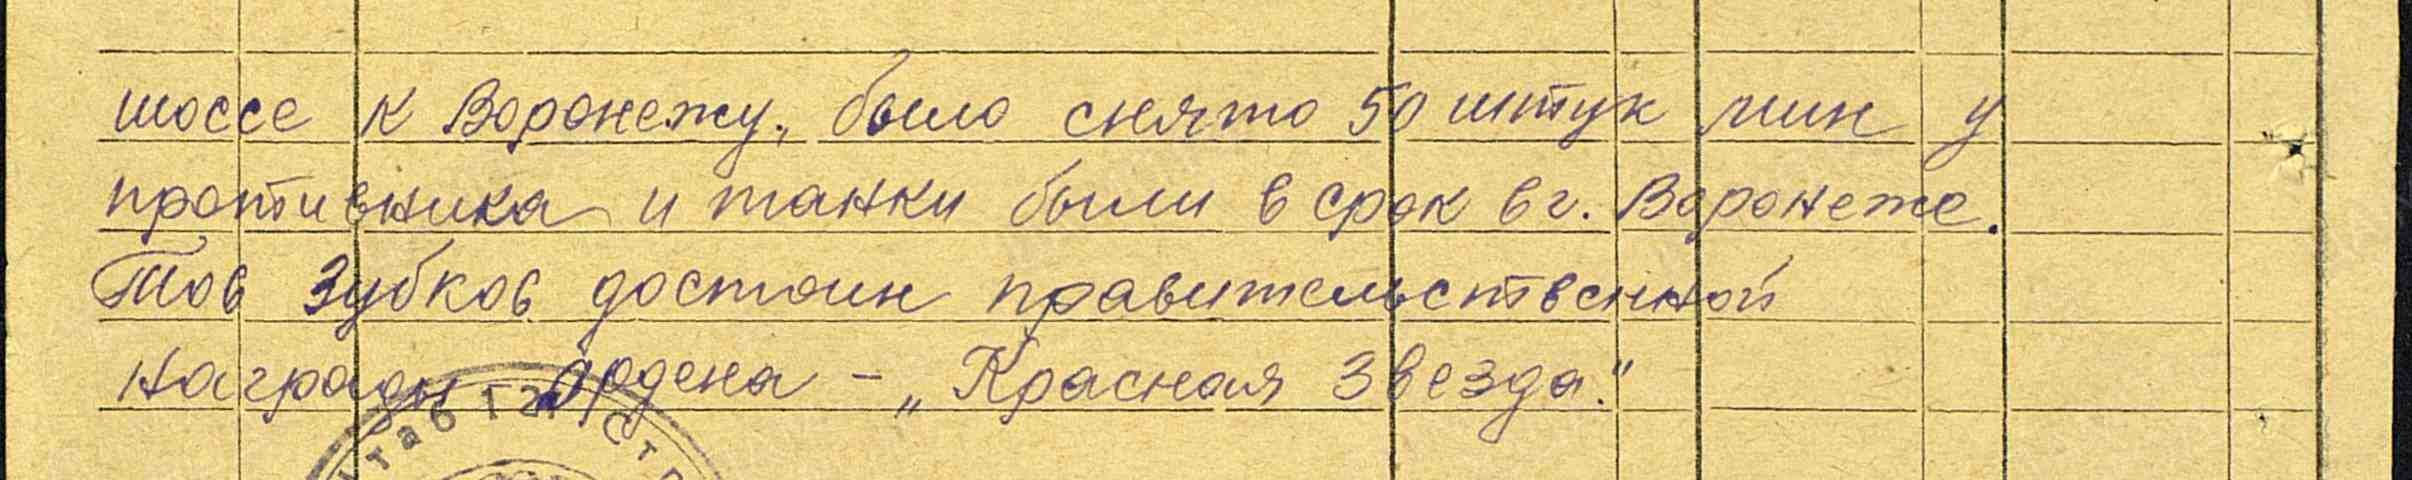 шоссе к Воронежу, было снято 50 штук мин у
противника и танки были в срок в г. Воронеже.
Тов Зубков достоин правительственной
награды ордена – „Красная Звезда."